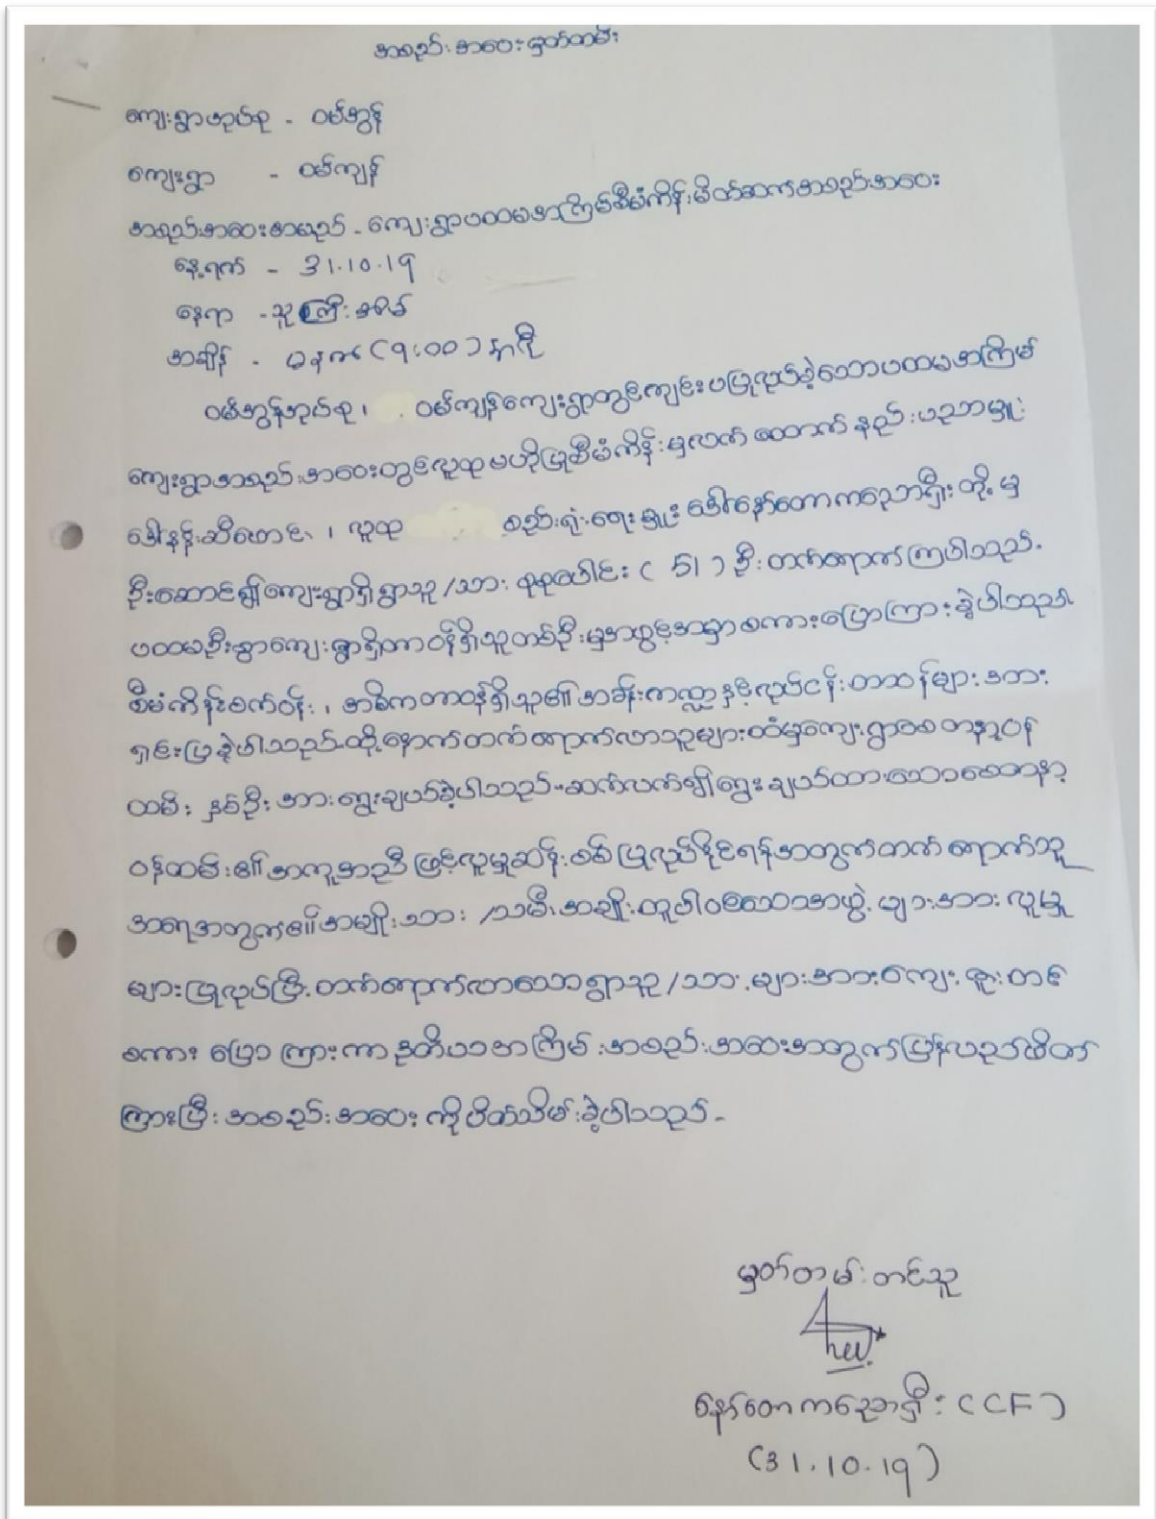 အစည်းအဝေးမှတ်တမ်း
ကျေးရွာအုပ်စု - ဝမ်အွန်
ကျေးရွာ - ဝမ်ကျန်
အစည်းအဝေးအမည် - ကျေးရွာပထမအကြိမ်စီမံကိန်းမိတ်ဆက်အစည်းအဝေး
နေ့ရက် - 31.10.19
နေရာ - သူကြီးအိမ်
အချိန် - မနက် (9:00) နာရီ
ဝမ်အွန်အုပ်စု၊ ဝမ်ကျန်ကျေးရွာတွင်ကျင်းပပြုလုပ်ခဲ့သောပထမအကြိမ်
ကျေးရွာအစည်းအဝေးတွင်လူထုဗဟိုပြုစီမံကိန်းမှလက်ထောက်နည်းပညာမှူး
ဒေါ်နန်း ၊ လူထု စည်းရုံးရေးမှူး ဒေါ်နော်တောကညောရှီးတို့မှ
ဦးဆောင်၍ကျေးရွာရှိရွာသူ/သား စုစုပေါင်း (51) ဦးတက်ရောက်ကြပါသည်.
ပထမဦးစွာကျေးရွာရှိတာဝန်ရှိသူတစ်ဦးမှအဖွင့်အမှာစကားပြောကြားခဲ့ပါသည်.
စီမံကိန်းစက်ဝန်း၊ အဓိကတာဝန်ရှိသူ၏အခန်းကဏ္ဍနှင့်လုပ်ငန်းတာဝန်များအား
ရှင်းပြခဲ့ပါသည်.ထို့နောက်တက်ရောက်လာသူများထံမှကျေးရွာစေတနာ့ဝန်
ထမ်း နှစ်ဦးအားရွေးချယ်ခဲ့ပါသည်.ဆက်လက်၍ရွေးချယ်ထားသောစေတနာ့
ဝန်ထမ်း၏အကူအညီဖြင့်လူမှုဆန်းစစ်ပြုလုပ်နိုင်ရန်အတွက်တက်ရောက်သူ
အရေအတွက်၏အမျိုးသား/သမီးအချိုးတူပါဝင်သောအဖွဲ့များအားလူမှု
များပြုလုပ်ပြီးတက်ရောက်လာသောရွာသူ/သားများအားကျေးဇူးတင်
စကား ပြောကြားကာဒုတိယအကြိမ်အစည်းအဝေးအတွက်ပြန်လည်ဖိတ်
ကြားပြီးအစည်းအဝေးကိုပိတ်သိမ်းခဲ့ပါသည်.
မှတ်တမ်းတင်သူ
နော်တောကညောရှီး (CCF)
(31.10.19)